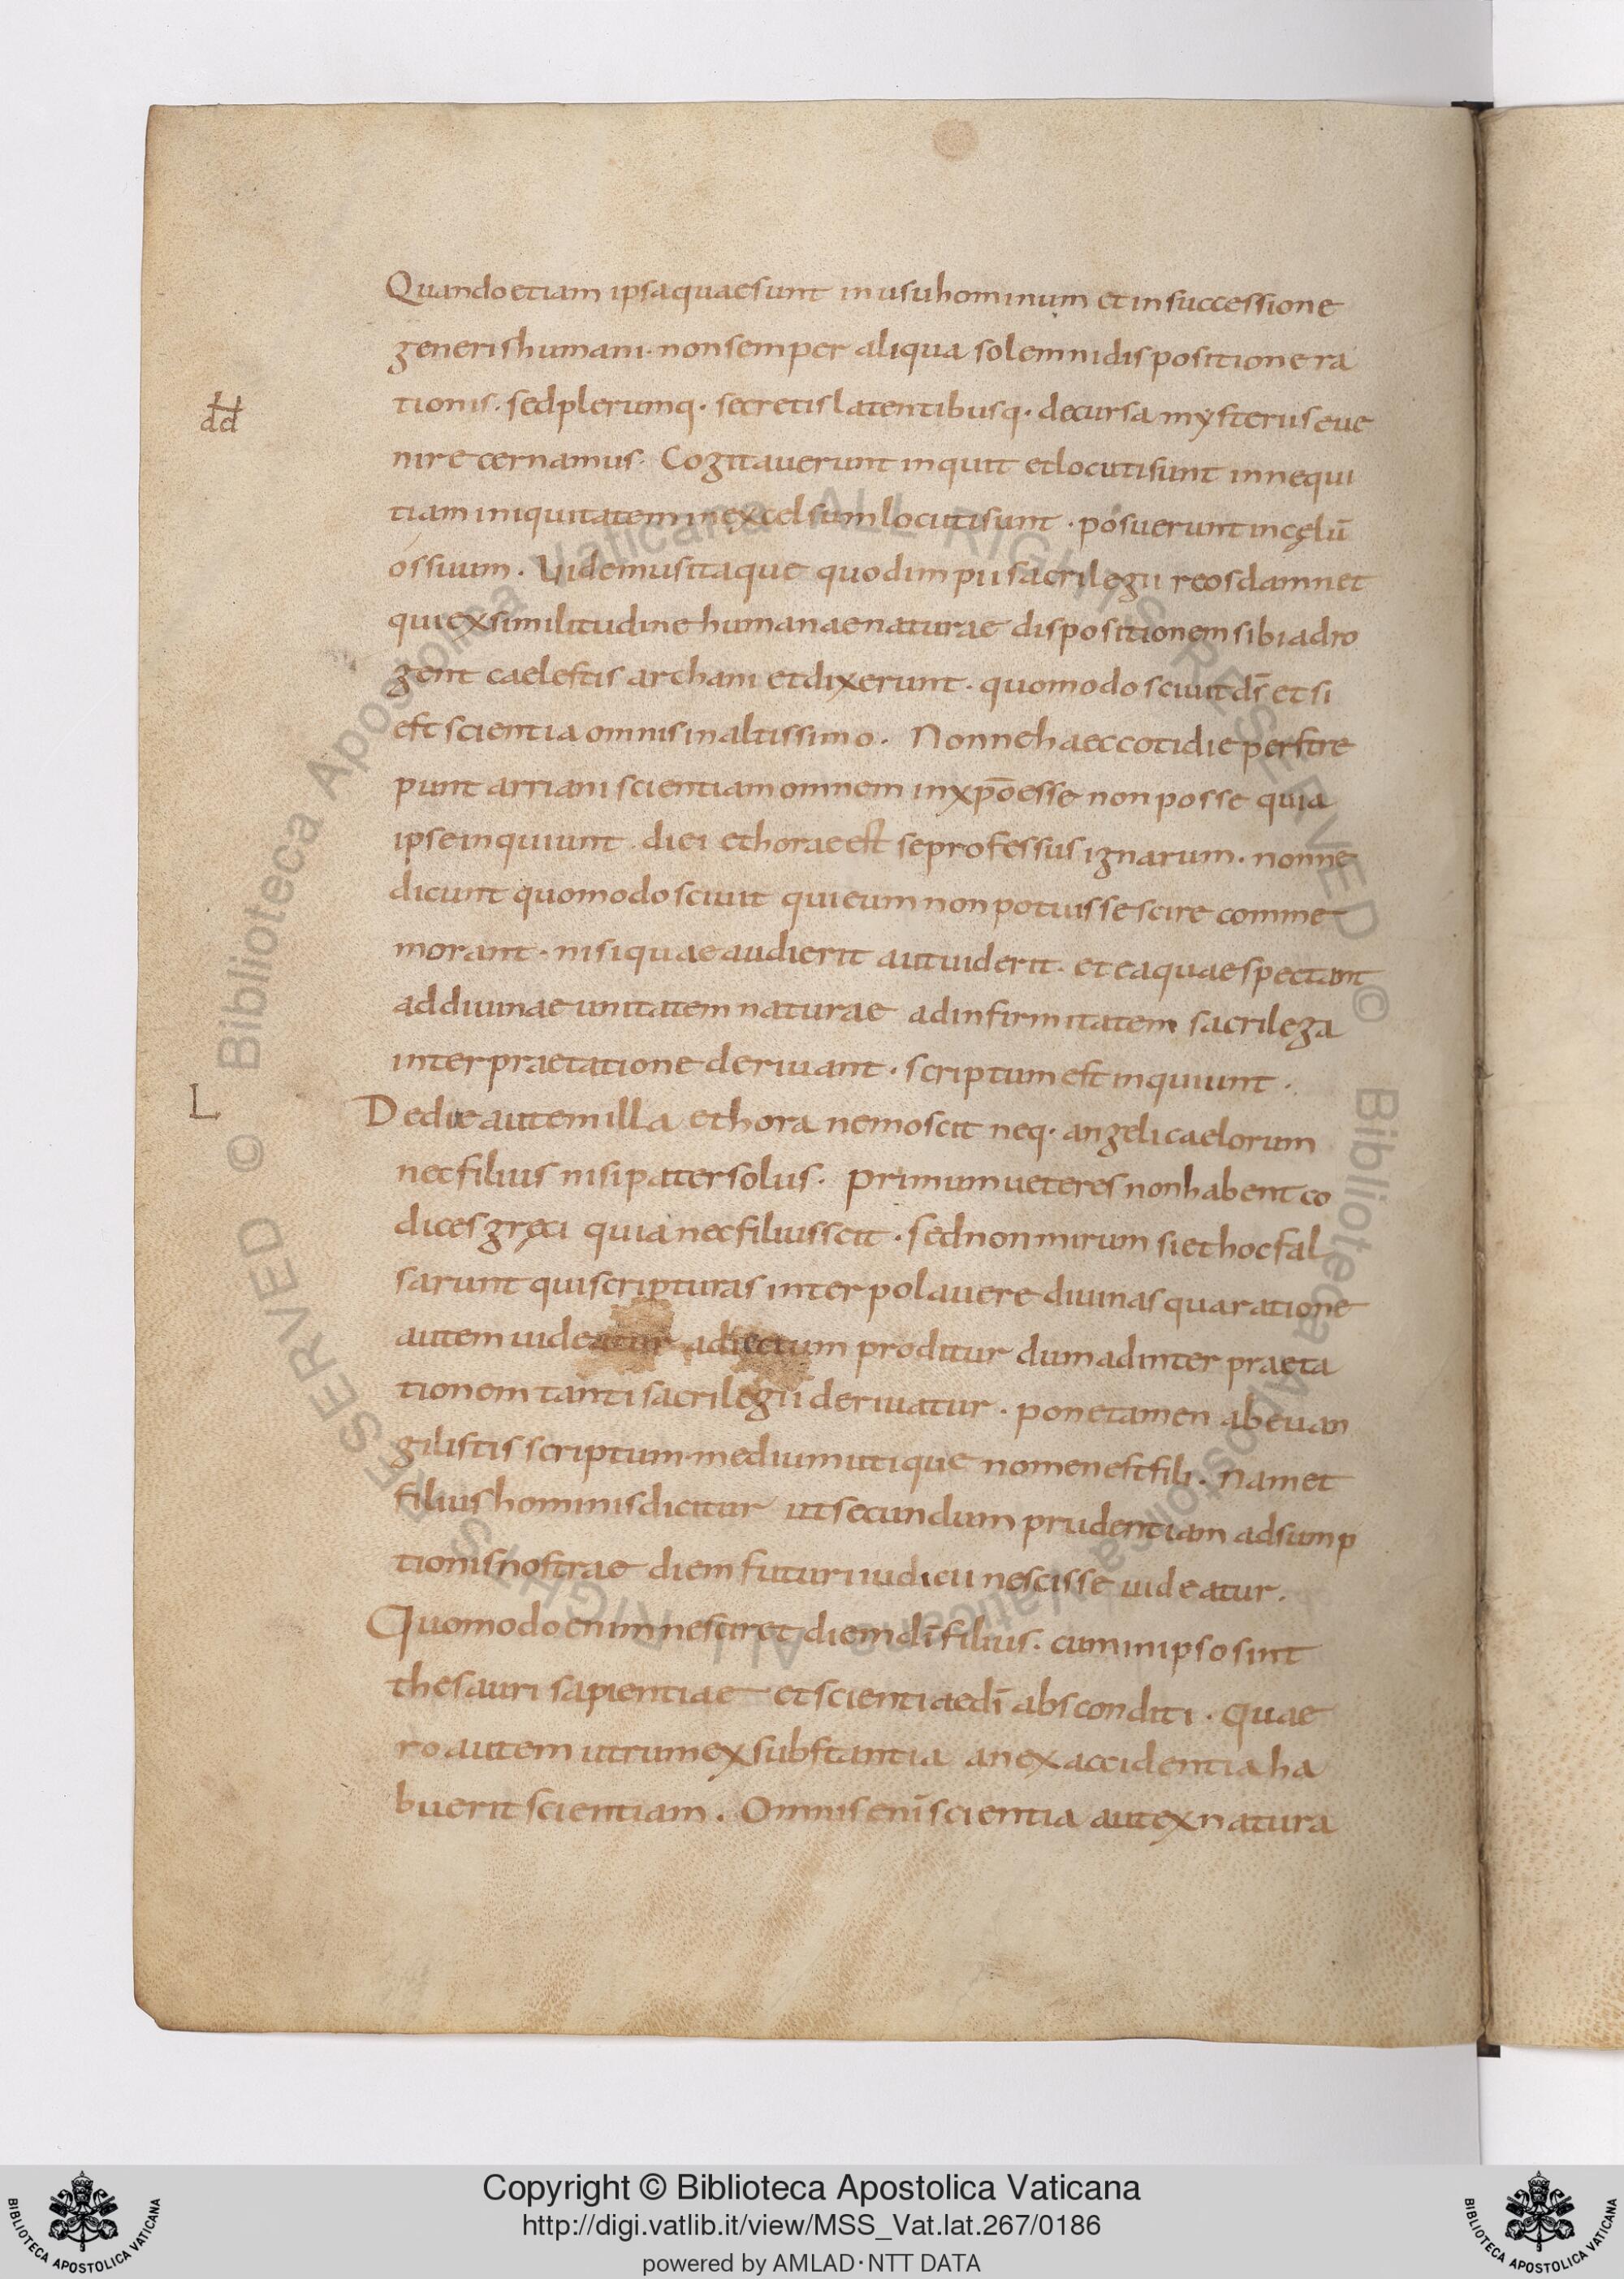 Quando etiam ipsa quae sunt in usu hominum et in successione
generis humani · non semper aliqua solemni dispositione ra
tionis · sed plerumq· secretis latentibusq· decursa mysteriis eue
dd
nire cernamus · Cogitauerunt inquit et locuti sunt in nequi
tiam iniquitatem in excelsum locuti sunt · posuerunt in cęlū
os suum · Uidemus itaque quod impii sacrilegii reos damnet
qui ex similitudine humanae naturae dispositionem sibi adro
gent caelestis archani et dixerunt · quomodo sciuit ds̄ et si
est scientia omnis in altissimo · Nonne haec cotidie perstre
punt arriani scientiam omnem in xp̄o esse non posse quia
ipse inquiunt · diei et horae est se professus ignarum · nonne
dicunt quomodo sciuit qui eum non potuisse scire comme
morant · nisi quae audierit aut uiderit · et ea quae spectant
ad diuinae unitatem naturae ad infirmitatem sacrilega
interpraetatione deriuant · scriptum est inquiunt ·
L
De die autem illa et hora nemo scit neq· angeli caelorum
nec filius nisi pater solus · Primum ueteres non habent co
dices gręci quia nec filius scit · sed non mirum si et hoc fal
sarunt qui scripturas interpolauere diuinas qua ratione
autem uideatur adiectum proditur dum ad interpraeta
tionem tanti sacrilegii deriuatur · pone tamen ab euan
gilistis scriptum · medium utique nomen est fili · Nam et
filius hominis dicitur ut secundum prudentiam adsump
tionis nostrae diem futuri iudicii nescisse uideatur ·
Quomodo enim nesciret diem dī filius · cum in ipso sint
thesauri sapientiae et scientiae dī absconditi · Quae
ro autem utrum ex substantia an ex accidentia ha
buerit scientiam · Omnis enī scientia aut ex natura
Copyright © Biblioteca Apostolica Vaticana
http://digi.vatlib.it/view/MSS_Vat.lat.267/0186
powered by AMLAD·NTT DATA
BIBLIOTECA APOSTOLICA VATICANA
BIBLIOTECA APOSTOLICA VATICANA
© Biblioteca Apostolica Vaticana ALL RIGHTS RESERVED © Biblioteca Apostolica Vaticana ALL RIGHTS RESERVED